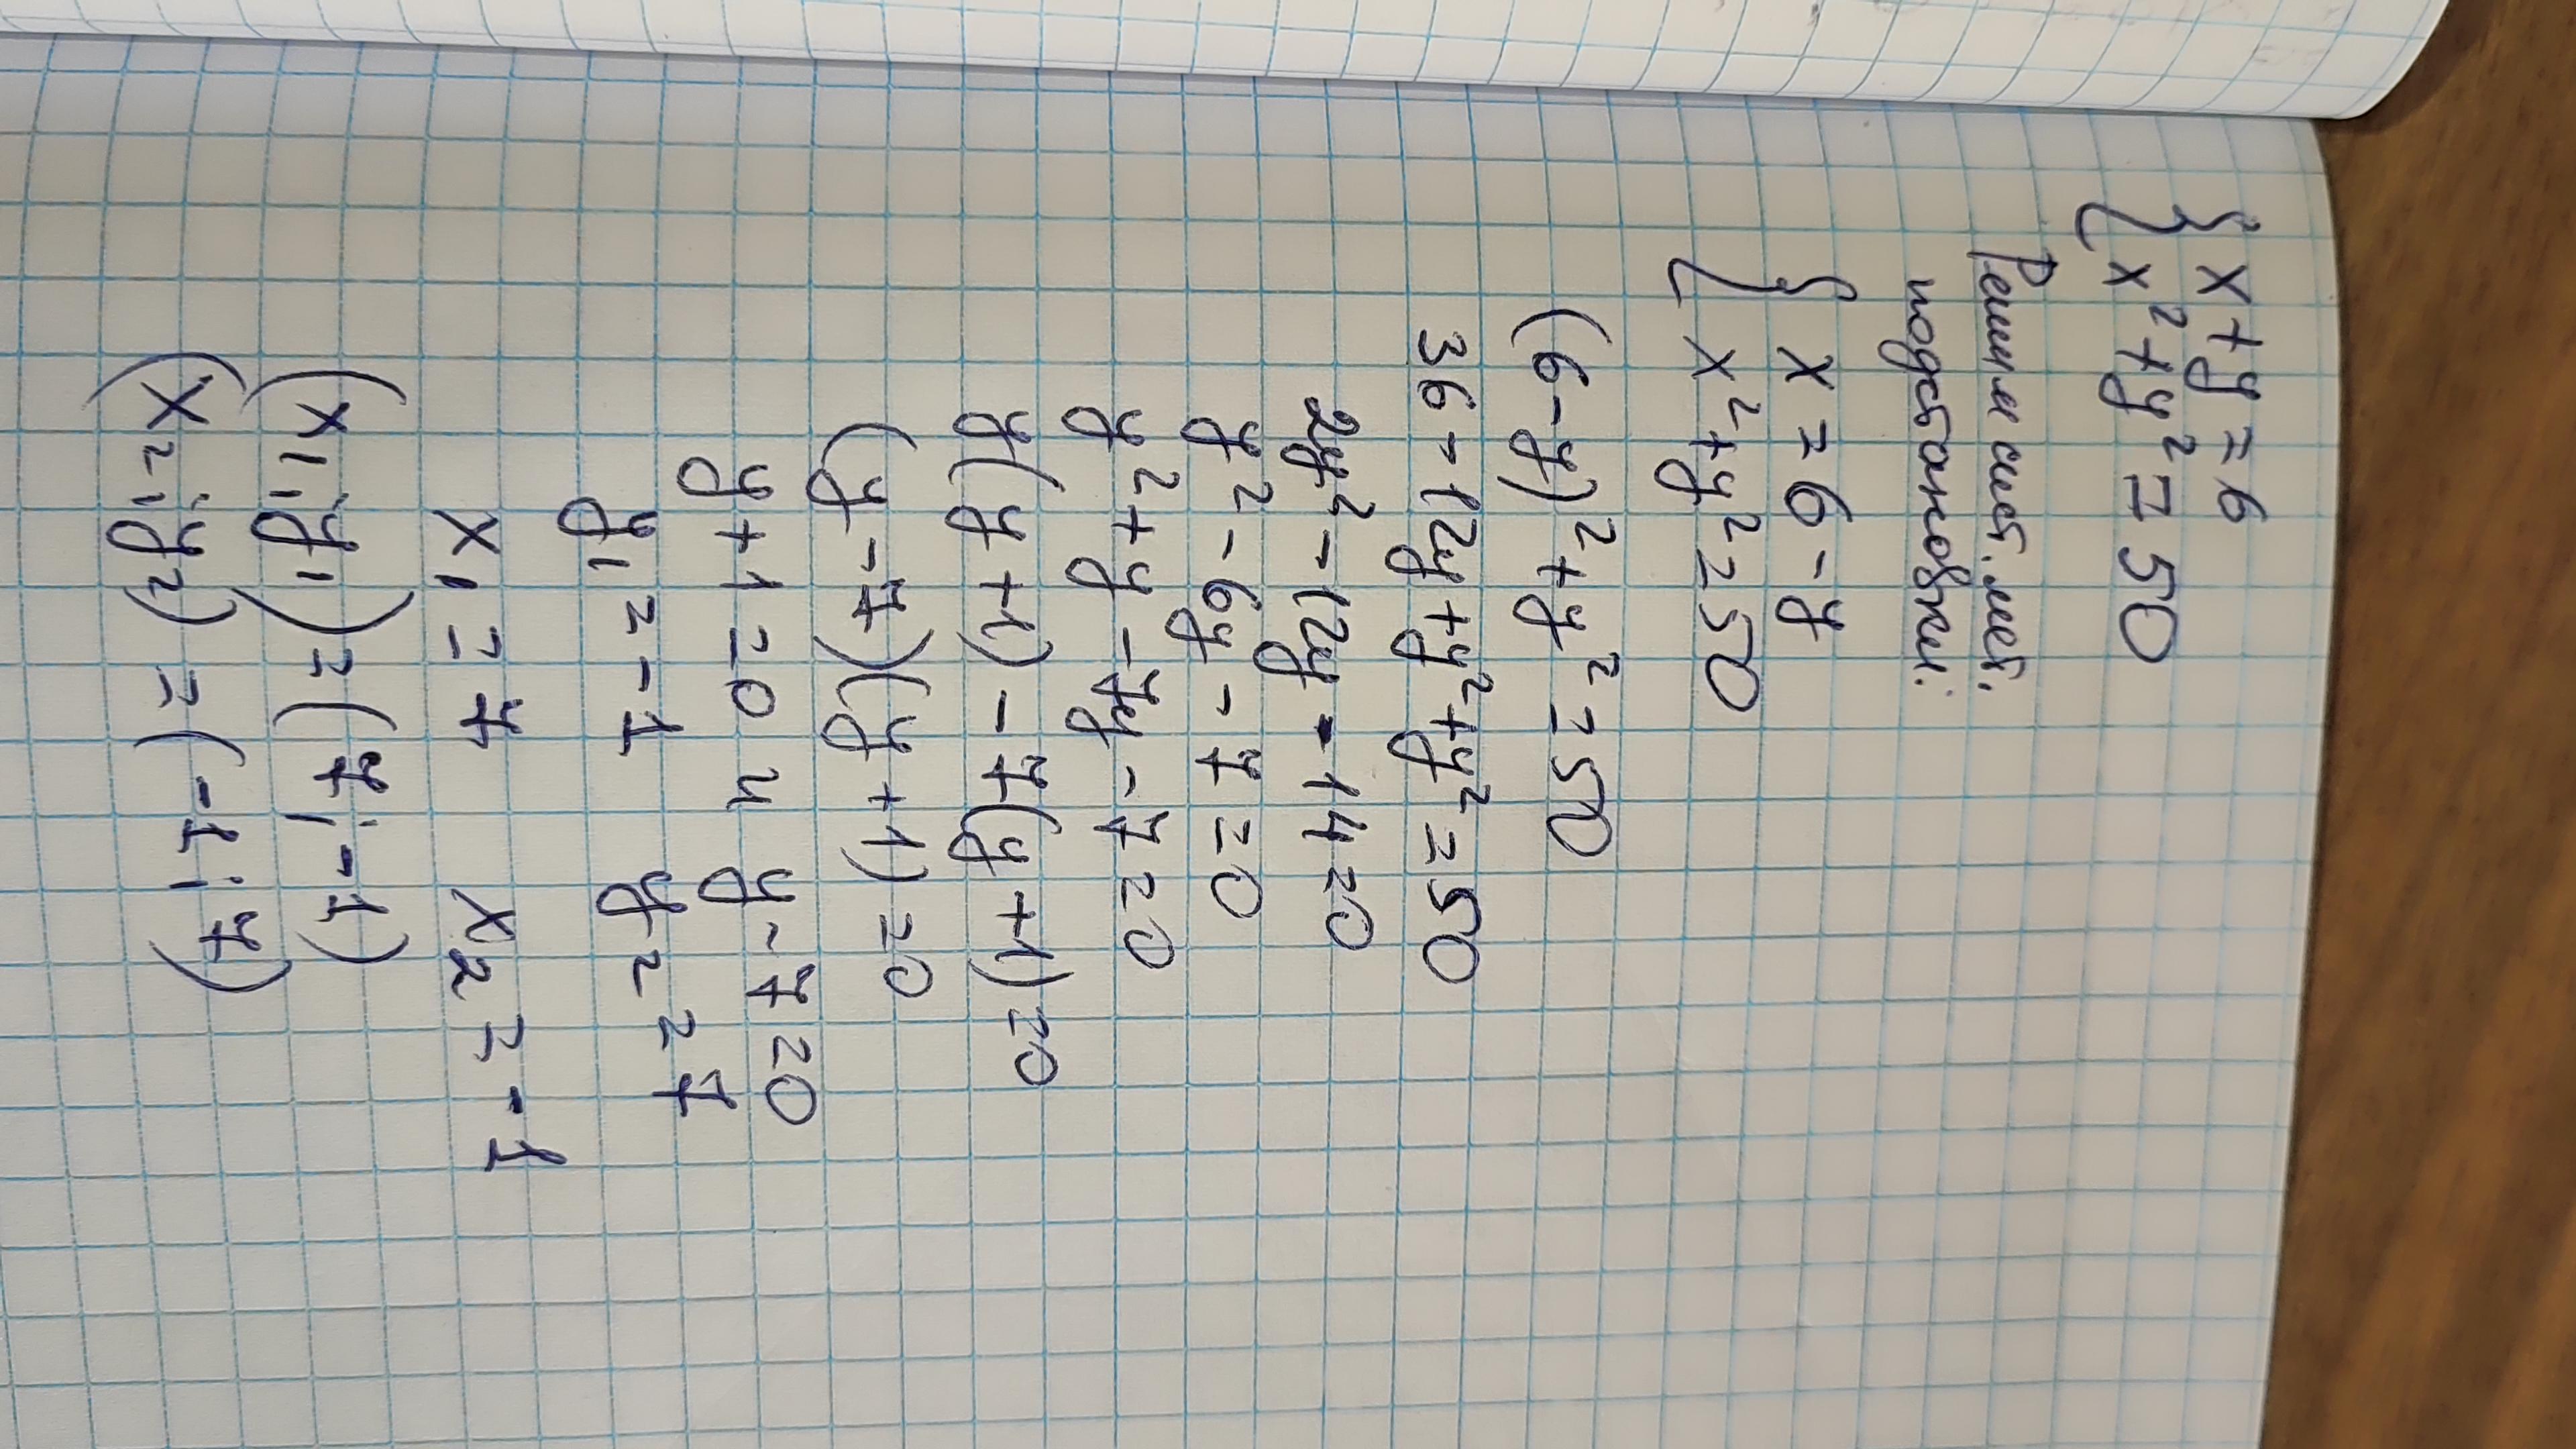 { x + y = 6
{ x² + y² = 50
Решим сист. мет.
подстановки:
{ x = 6 - y
{ x² + y² = 50
(6 - y)² + y² = 50
36 - 12y + y² + y² = 50
2y² - 12y - 14 = 0
y² - 6y - 7 = 0
y² + y - 7y - 7 = 0
y(y + 1) - 7(y + 1) = 0
(y - 7)(y + 1) = 0
y + 1 = 0 и y - 7 = 0
y₁ = -1 y₂ = 7
x₁ = 7 x₂ = -1
(x₁; y₁) = (7; -1)
(x₂; y₂) = (-1; 7)